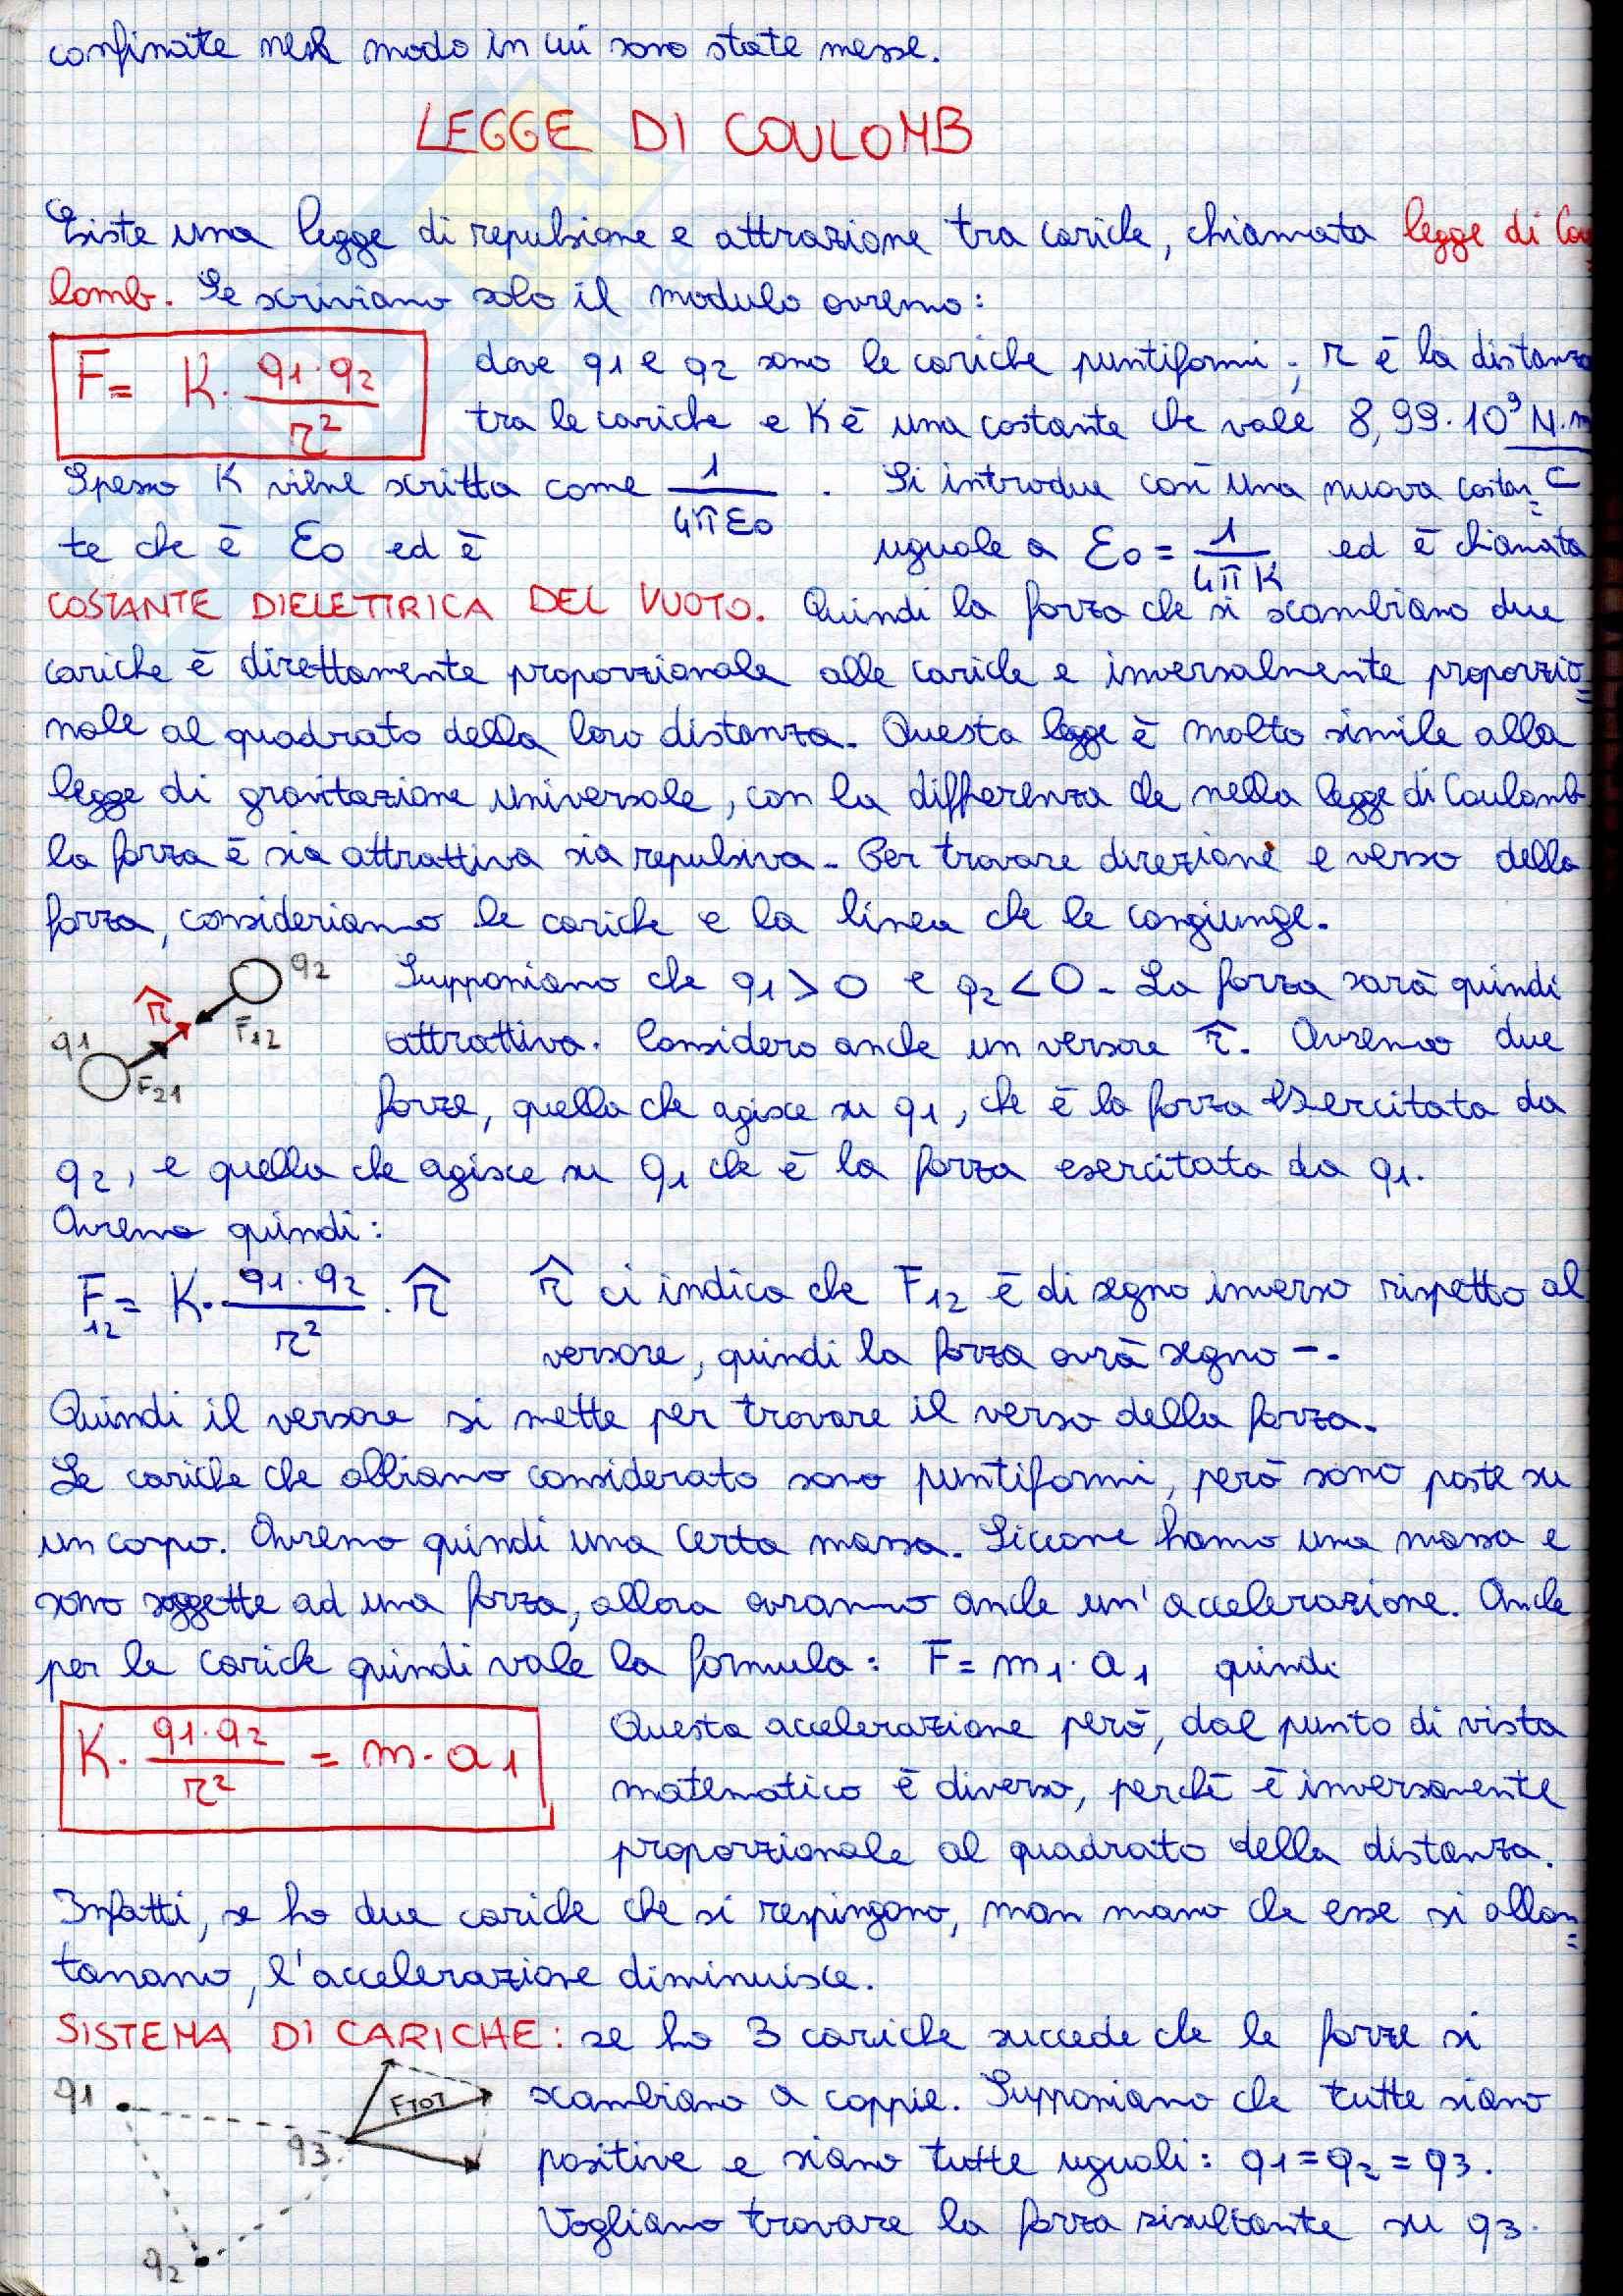 confinate nel modo in cui sono state messe.
LEGGE DI COULOMB
Esiste una legge di repulsione e attrazione tra cariche, chiamata legge di Cou=
lomb. Se scriviamo solo il modulo avremo:
F = K · q1·q2 / r²
dove q1 e q2 sono le cariche puntiformi; r è la distanza
tra le cariche e K è una costante che vale 8,99·10⁹ N·m / C
Spesso K viene scritta come 1 / 4πε0 . Si introduce così una nuova costan=
te che è ε0 ed è uguale a ε0 = 1 / 4πK ed è chiamata
COSTANTE DIELETTRICA DEL VUOTO. Quindi la forza che si scambiano due
cariche è direttamente proporzionale alle cariche e inversalmente proporzio=
nale al quadrato della loro distanza. Questa legge è molto simile alla
legge di gravitazione universale, con la differenza che nella legge di Coulomb
la forza è sia attrattiva sia repulsiva. Per trovare direzione e verso della
forza, consideriamo le cariche e la linea che le congiunge.
q2
r̂
F12
q1
F21
Supponiamo che q1 > 0 e q2 < 0. La forza sarà quindi
attrattiva. Considero anche un versore r̂. Avremo due
forze, quella che agisce su q1, che è la forza esercitata da
q2, e quella che agisce su q1 che è la forza esercitata da q1.
Avremo quindi:
F12 = K · q1·q2 / r² · r̂ r̂ ci indica che F12 è di segno inverso rispetto al
versore, quindi la forza avrà segno -.
Quindi il versore si mette per trovare il verso della forza.
Le cariche che abbiamo considerato sono puntiformi, però sono poste su
un corpo. Avremo quindi una certa massa. Siccome hanno una massa e
sono soggette ad una forza, allora avranno anche un'accelerazione. Anche
per le cariche quindi vale la formula: F = m1·a1 quindi
K · q1·q2 / r² = m·a1
Questa accelerazione però, dal punto di vista
matematico è diverso, perchè è inversamente
proporzionale al quadrato della distanza.
Infatti, se ho due cariche che si respingono, man mano che esse si allon=
tanano, l'accelerazione diminuisce.
SISTEMA DI CARICHE: se ho 3 cariche succede che le forze si
scambiano a coppie. Supponiamo che tutte siano
positive e siano tutte uguali: q1 = q2 = q3.
Vogliamo trovare la forza risultante su q3.
q1
FTOT
q3
q2